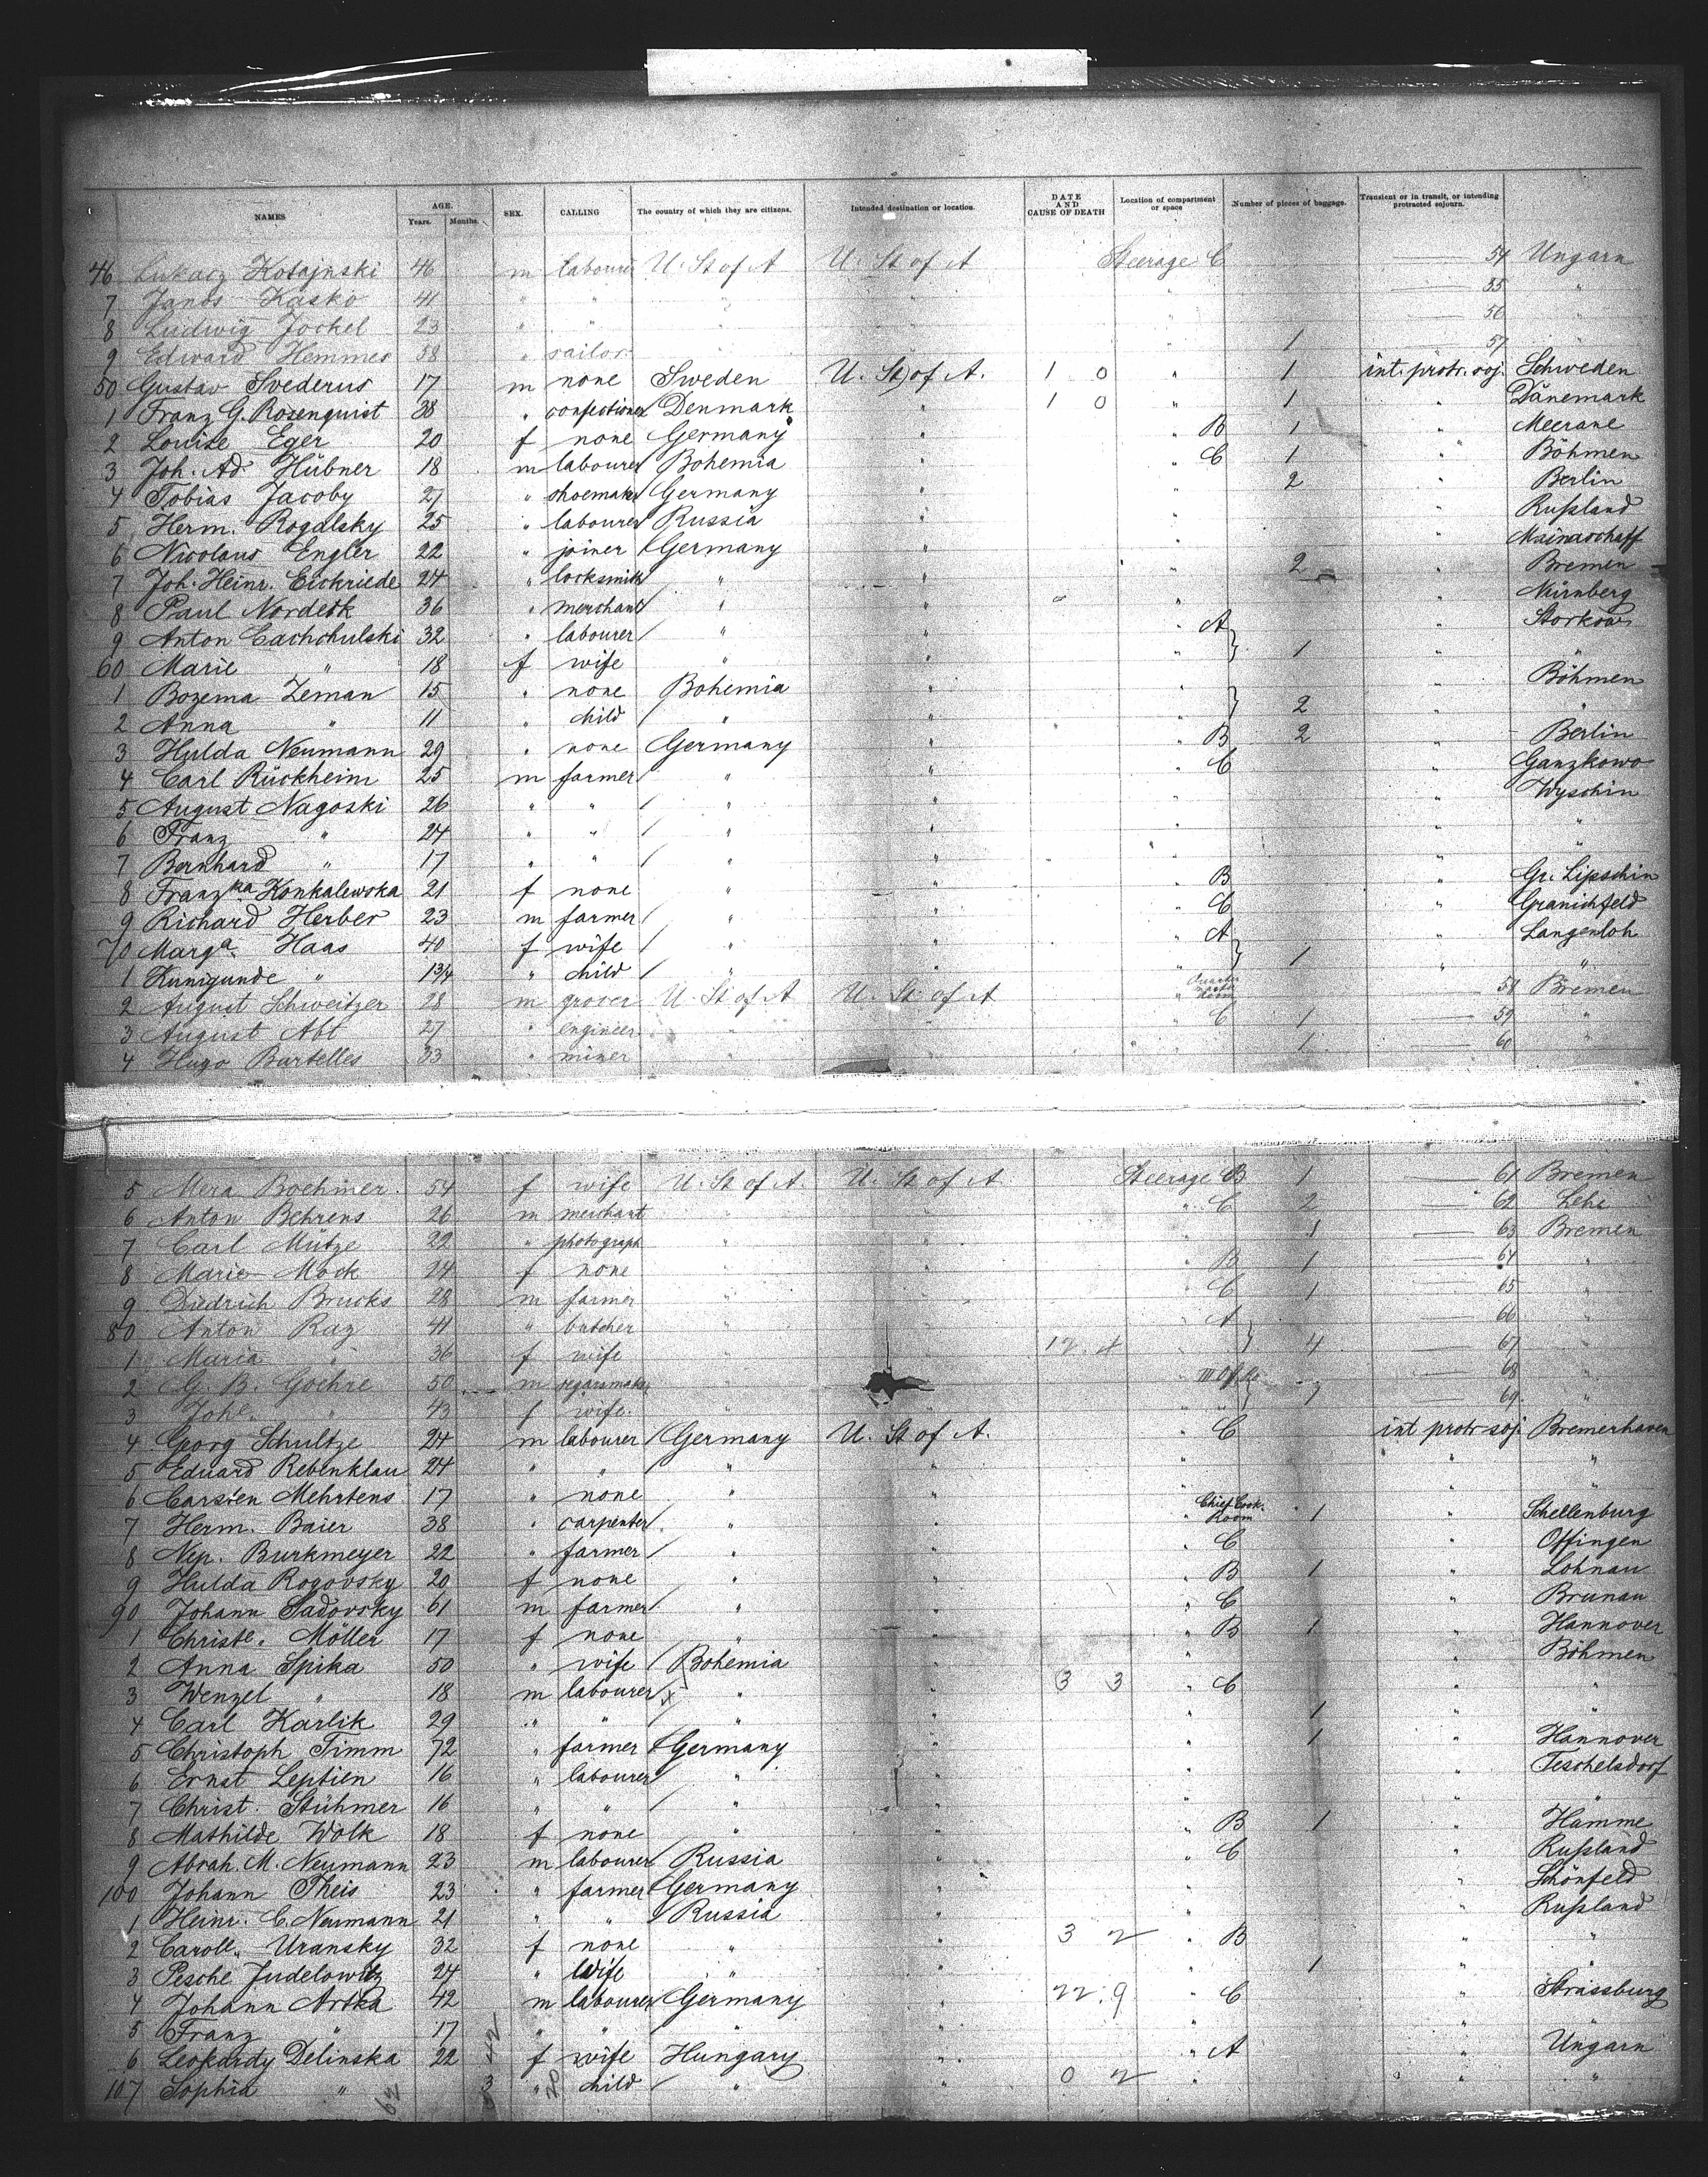 NAMES AGE. Years. Months. SEX. CALLING The country of which they are citizens. Intended destination or location. DATE AND CAUSE OF DEATH Location of compartment or space Number of pieces of baggage. Transient or in transit, or intending protracted sojourn.
46 Lukacz Kotajnski 46 m labourer U. St of A U. St of A Steerage C 54 Ungarn
7 Janos Kasko 41 " " " " " 55 "
8 Ludwig Jockel 23 " " " " " 56 "
9 Edward Hemmes 58 " sailor " " " 1 57 "
50 Gustav Svederus 17 m none Sweden U. St of A. 1 0 " 1 int. protr. soj. Schweden
1 Franz G. Rosenquist 38 " confectioner Denmark " 1 0 " 1 " Dänemark
2 Louise Eger 20 f none Germany " " B 1 " Meerane
3 Joh. Ad. Hübner 18 m labourer Bohemia " " C 1 " Böhmen
4 Tobias Jacoby 27 " shoemaker Germany " " 2 " Berlin
5 Herm. Rogalsky 25 " labourer Russia " " " Rußland
6 Nicolaus Engler 22 " joiner Germany " " " Mainaschaff
7 Joh. Heinr. Eickriede 24 " locksmith " " " 2 " Bremen
8 Paul Nordeck 36 " merchant " " " " Nürnberg
9 Anton Cachchulski 32 " labourer " " " A " Storkow
60 Marie " 18 f wife " " " 1 " "
1 Bozema Zeman 15 " none Bohemia " " " Böhmen
2 Anna " 11 " child " " " 2 " "
3 Hulda Neumann 29 " none Germany " " B 2 " Berlin
4 Carl Rückheim 25 m farmer " " " C " Ganzkowo
5 August Nagoski 26 " " " " " " Wyschin
6 Franz " 24 " " " " " " "
7 Bernhard " 17 " " " " " " "
8 Franzka Konkalewska 21 f none " " " B " Gr. Lipschin
9 Richard Herber 23 m farmer " " " C " Granichfeld
70 Marga. Haas 40 f wife " " " A " Langenloh
1 Kunigunde " 1 3/4 " child " " " 1 " "
2 August Schweitzer 28 m grocer U. St of A U. St of A " Room 58 Bremen
3 August Abt 27 " engineer " " " C 1 59 "
4 Hugo Bartelles 33 " miner " " " 1 60 "
5 Mera Boehmer 54 f wife U. St of A. U. St of A Steerage B 1 61 Bremen
6 Anton Behrens 26 m merchant " " " C 2 62 Lehe
7 Carl Mütze 22 " photograph " " " 1 63 Bremen
8 Marie Mock 24 f none " " " B 1 64 "
9 Diedrich Brucks 28 m farmer " " " C 1 65 "
80 Anton Raz 41 " butcher " " " A 66 "
1 Maria " 36 f wife " " 12 4 " 4 67 "
2 G. B. Goehre 50 m segarmaker " " " III Of. 68 "
3 Johe. " 43 f wife " " " 7 69 "
4 Georg Schultze 24 m labourer Germany U. St of A. " C int protr soj. Bremerhaven
5 Eduard Rebenklau 24 " " " " " " "
6 Carsten Mehrtens 17 " none " " " " "
7 Herm. Baier 38 " carpenter " " " Chief Cook. Room 1 " Schellenburg
8 Nep. Burkmeyer 22 " farmer " " " C " Offingen
9 Hulda Rogovsky 20 f none " " " B 1 " Lohnau
90 Johann Sadovsky 61 m farmer " " " C " Brunau
1 Christe. Möller 17 f none " " " B 1 " Hannover
2 Anna Spika 50 " wife Bohemia " " " Böhmen
3 Wenzel " 18 m labourer " " 3 3 " C " "
4 Carl Karlik 29 " " " " " 1 " "
5 Christoph Timm 72 " farmer Germany " " 1 " Hannover
6 Ernst Leptien 16 " labourer " " " " Teschelsdorf
7 Christ. Stühmer 16 " " " " " " "
8 Mathilde Wolk 18 f none " " " B 1 " Hamme
9 Abrah. M. Neumann 23 m labourer Russia " " C " Rußland
100 Johann Theis 23 " farmer Germany " " " Schönfeld
1 Heinr. C. Neumann 21 " " Russia " " " Rußland
2 Caroll. Uransky 32 f none " " 3 2 " B " "
3 Pesche Judelowitz 24 " wife " " " 1 " "
4 Johann Artka 42 m labourer Germany " 22.9 " C " Strassburg
5 Franz " 17 " " " " " " "
6 Leokardy Delinska 22 f wife Hungary " " A " Ungarn
107 Sophia " 3 " child " " 0 2 " " "